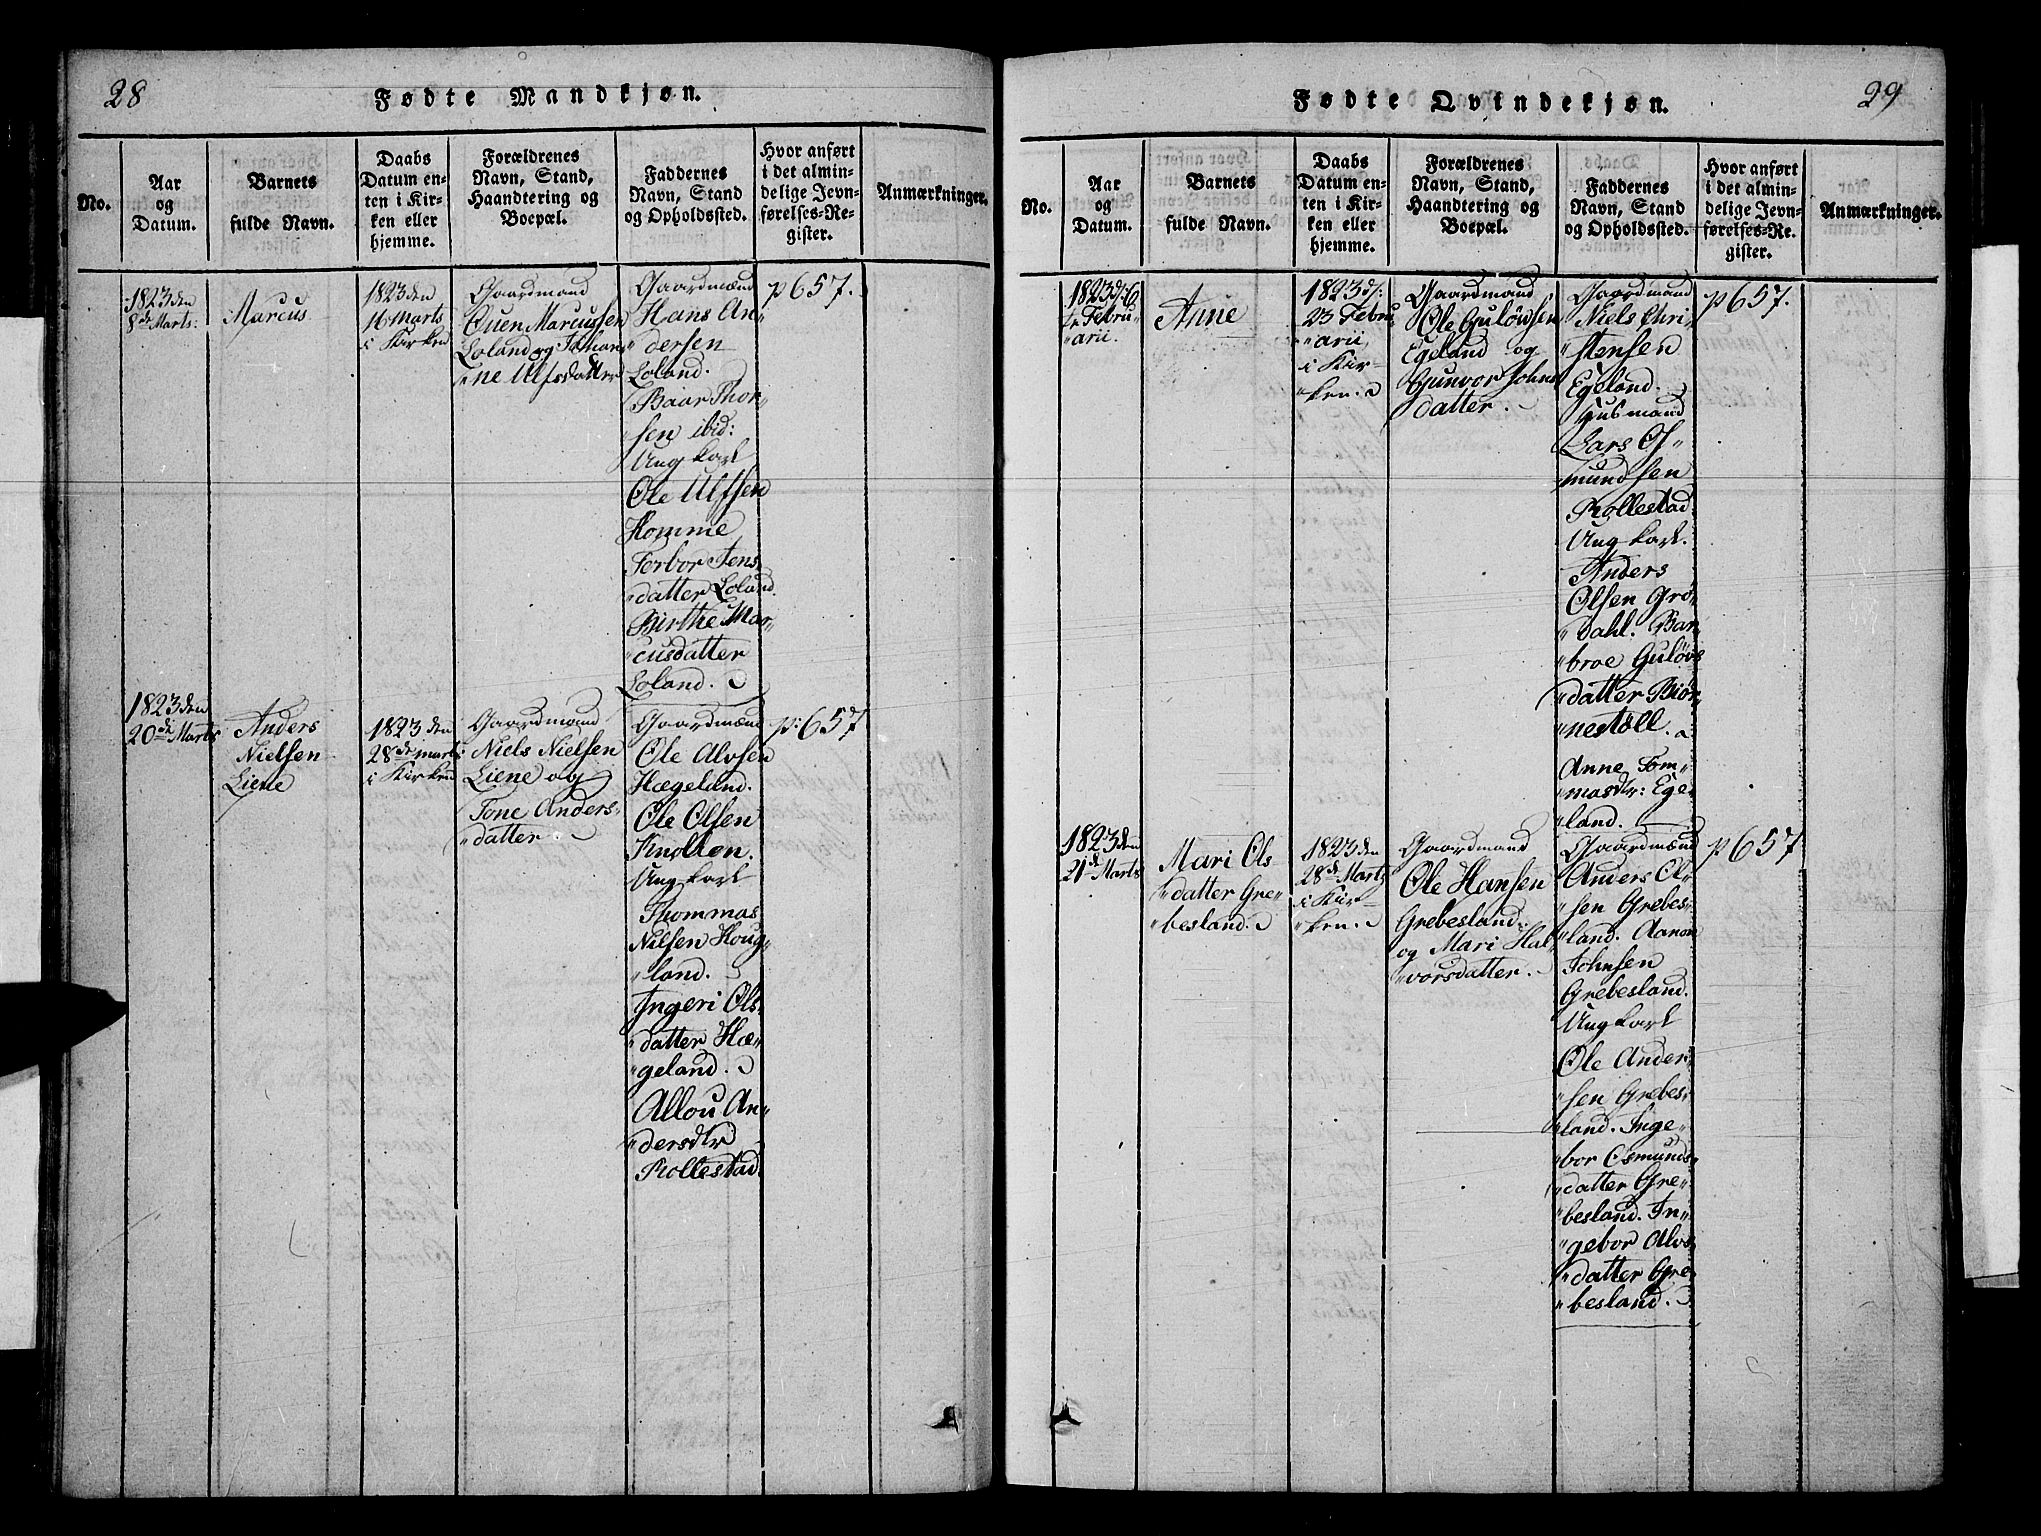 28
Fødte Mandkjøn.
No.
Aar
og
Datum.
Barnets
fulde Navn.
Daabs
Datum en-
ten i Kir-
ken eller
hjemme.
Forældrenes
Navn, Stand,
Haandtering og
Boepæl.
Faddernes
Navn, Stand
og Opholdssted.
Hvor anført
i det almin-
delige Jevn-
førelses-Re-
gister.
Anmærkninger.
1823 den
8de Marts.
Marcus
1823 den
16 Marts
i Kirken
Gaardmand
Ouen Marcussen
Loland og
"ne Ulfsdatter
Gaardmænd
Hans An"
"dersen
Loland.
Baar Thor"
"sen ibid:
Ungkarl
Ole Ulfsen
Homme
Torbor Jens
"datter Loland
Birthe Mar"
"cusdatter
Loland.
p 657.
1823 den
20de Marts
Anders
Nielsen
Liene
1823 den
28de Marts
i Kirken
Gaardmand
Niels Nielsen
Liene og
Tone Anders"
"datter.
Gaardmænd
Ole Alvsen
Hægeland.
Ole Olsen
Knollen.
Ungkarl
Thommas
Nilsen Houg"
"land.
Ingeri Ols"
"datter Hæ"
"geland.
Allou An"
"dersdtr
Rollestad.
p: 657
29
Fødte Qvindekjøn.
No.
Aar
og
Datum.
Barnets
fulde Navn.
Daabs
Datum en-
ten i Kir-
ken eller
hjemme.
Forældrenes
Navn, Stand,
Haandtering og
Boepæl.
Faddernes
Navn, Stand
og Opholdssted.
Hvor anført
i det almin-
delige Jevn-
førelses-Re-
gister.
Anmærkninger.
1823 d: 6
te Febru"
"arii.
Anne
1823 d:
23 Febru"
"arii,
i Kir-
"ken.
Gaardmand
Ole Guløvsen
Egeland og
Gunvor Johns
datter.
Gaardmand
Niels Chri"
"stensen
Egeland.
Husmand
Lars Os"
"mundsen
Rollestad
Ungkarl.
Anders
Olsen Grø"
"dahl. Bar"
"broe Guløvs
"datter Biør"
"nestøll.
Anne Tom"
"masdtr: Ege"
"land.
p 657.
1823 den
21de Marts
Mari Ols
"datter Gre"
"besland.
1823 den
28de Marts
i Kir-
"ken.
Gaardmand
Ole Hansen
Grebesland
og Mari Hal"
"vorsdatter.
Gaardmænd
Anders Ol"
"sen Grebes"
"land. Aanon
Johnsen
Grebesland.
Ungkarl
Ole Ander"
"sen Grebes"
"land. Inge"
"bor Osmunds"
"datter Gre"
"besland. In"
"gebor Alvs"
"datter Gre"
"besland.
p 657